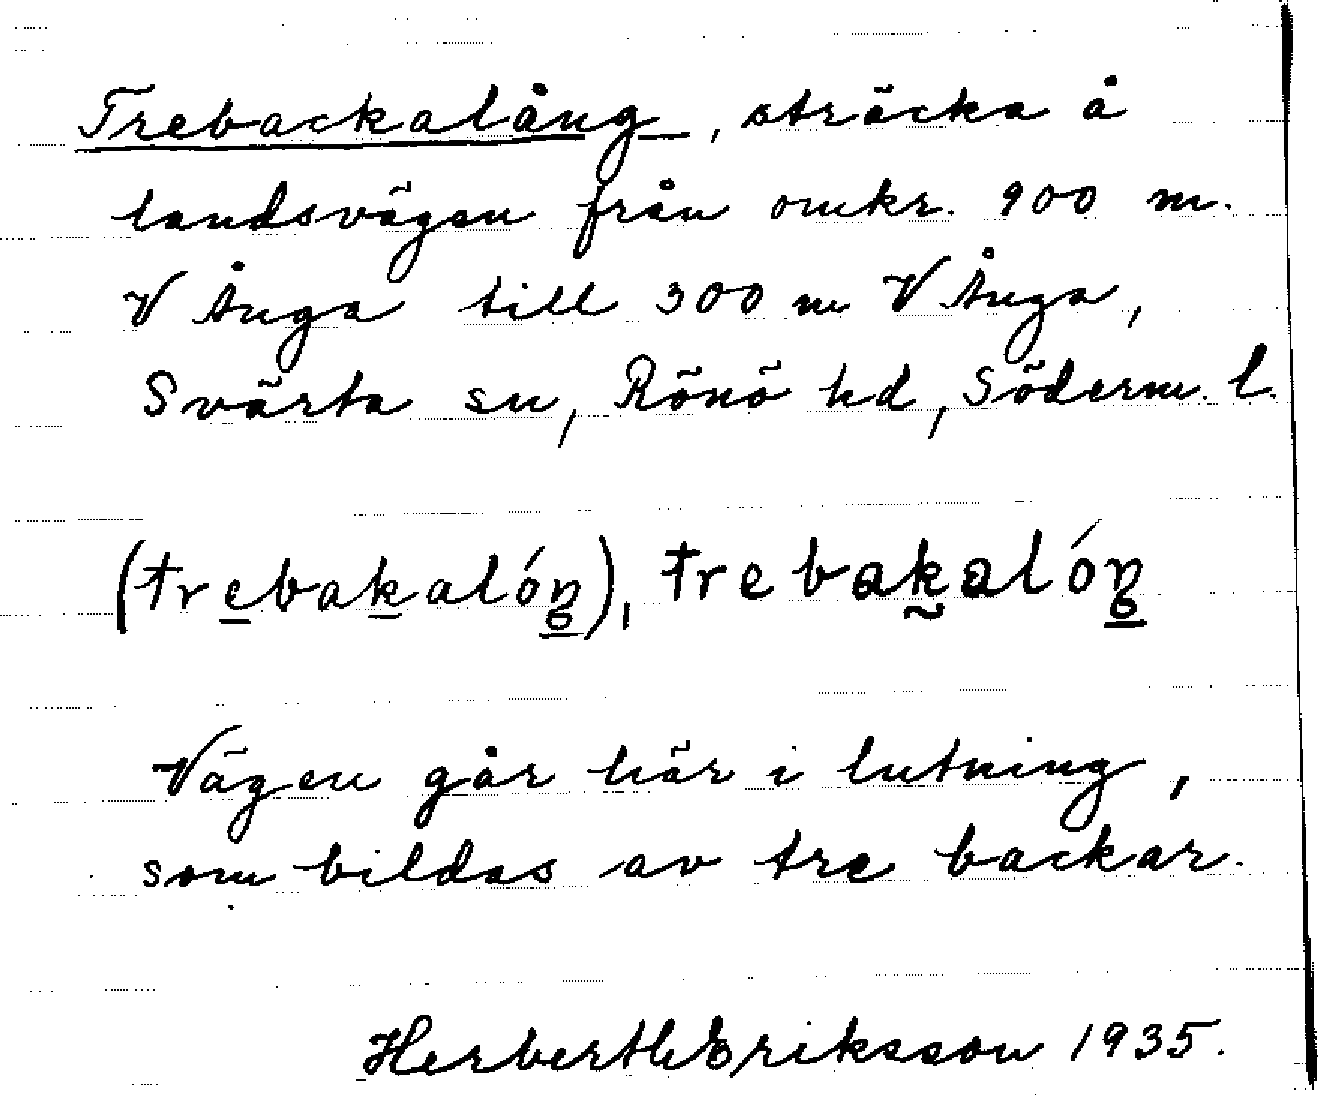 Trebackalång, sträcka å
landsvägen från omkr. 900 m.
V Ånga till 300 m V Ånga,
Svärta sn, Rönö hd, Söderm. l.
(trebakalóŋ), trebakalóŋ
Vägen går här i lutning,
som bildas av tre backar.
Herbert Eriksson 1935.